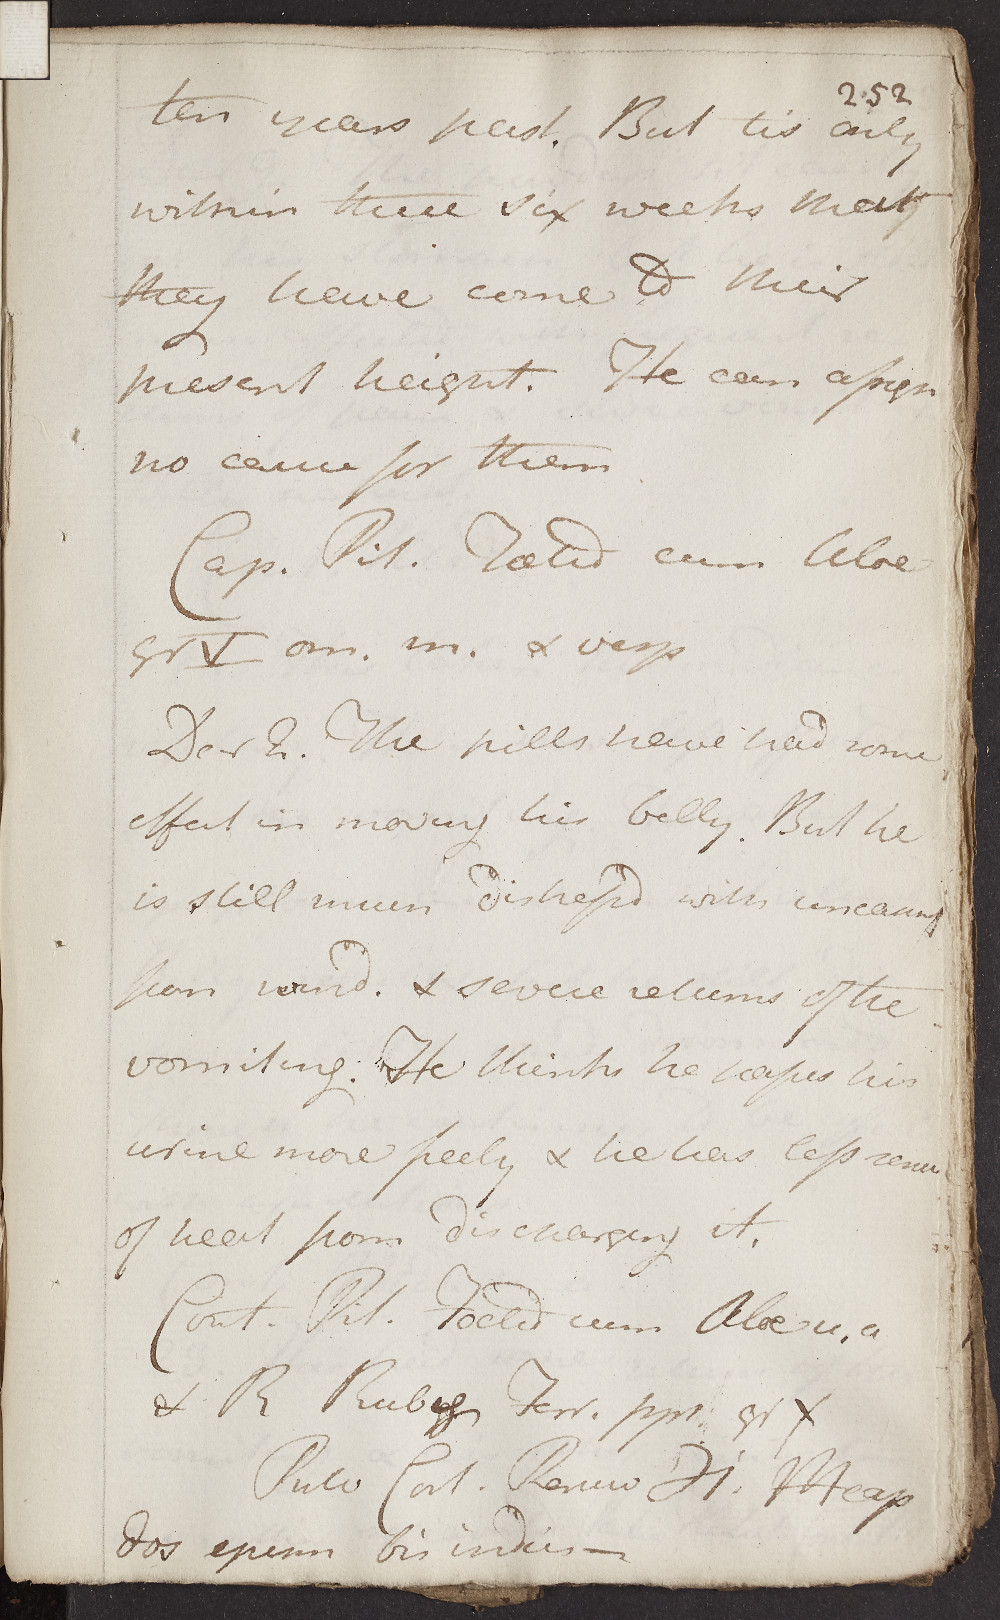 252
ten years past. But tis only
within these six weeks that
they have come to their
present height. He can assign
no cause for them
Cap. Pil. Fœtid cum Aloe
gr V om. m. & vesp
Decr 2. The pills have had some
effect in moving his belly. But he
is still much distressd with uneasiness
from wind. & severe returns of the
vomiting. He thinks he passes his
urine more freely & he has less sense
of heat from discharging it.
Cont. Pil. Foetid cum Aloe u. a
& R Rubig Ferr. ppt gr X
Pulv Cort. Peruv ℈i. M cap
dos epenn bis indies